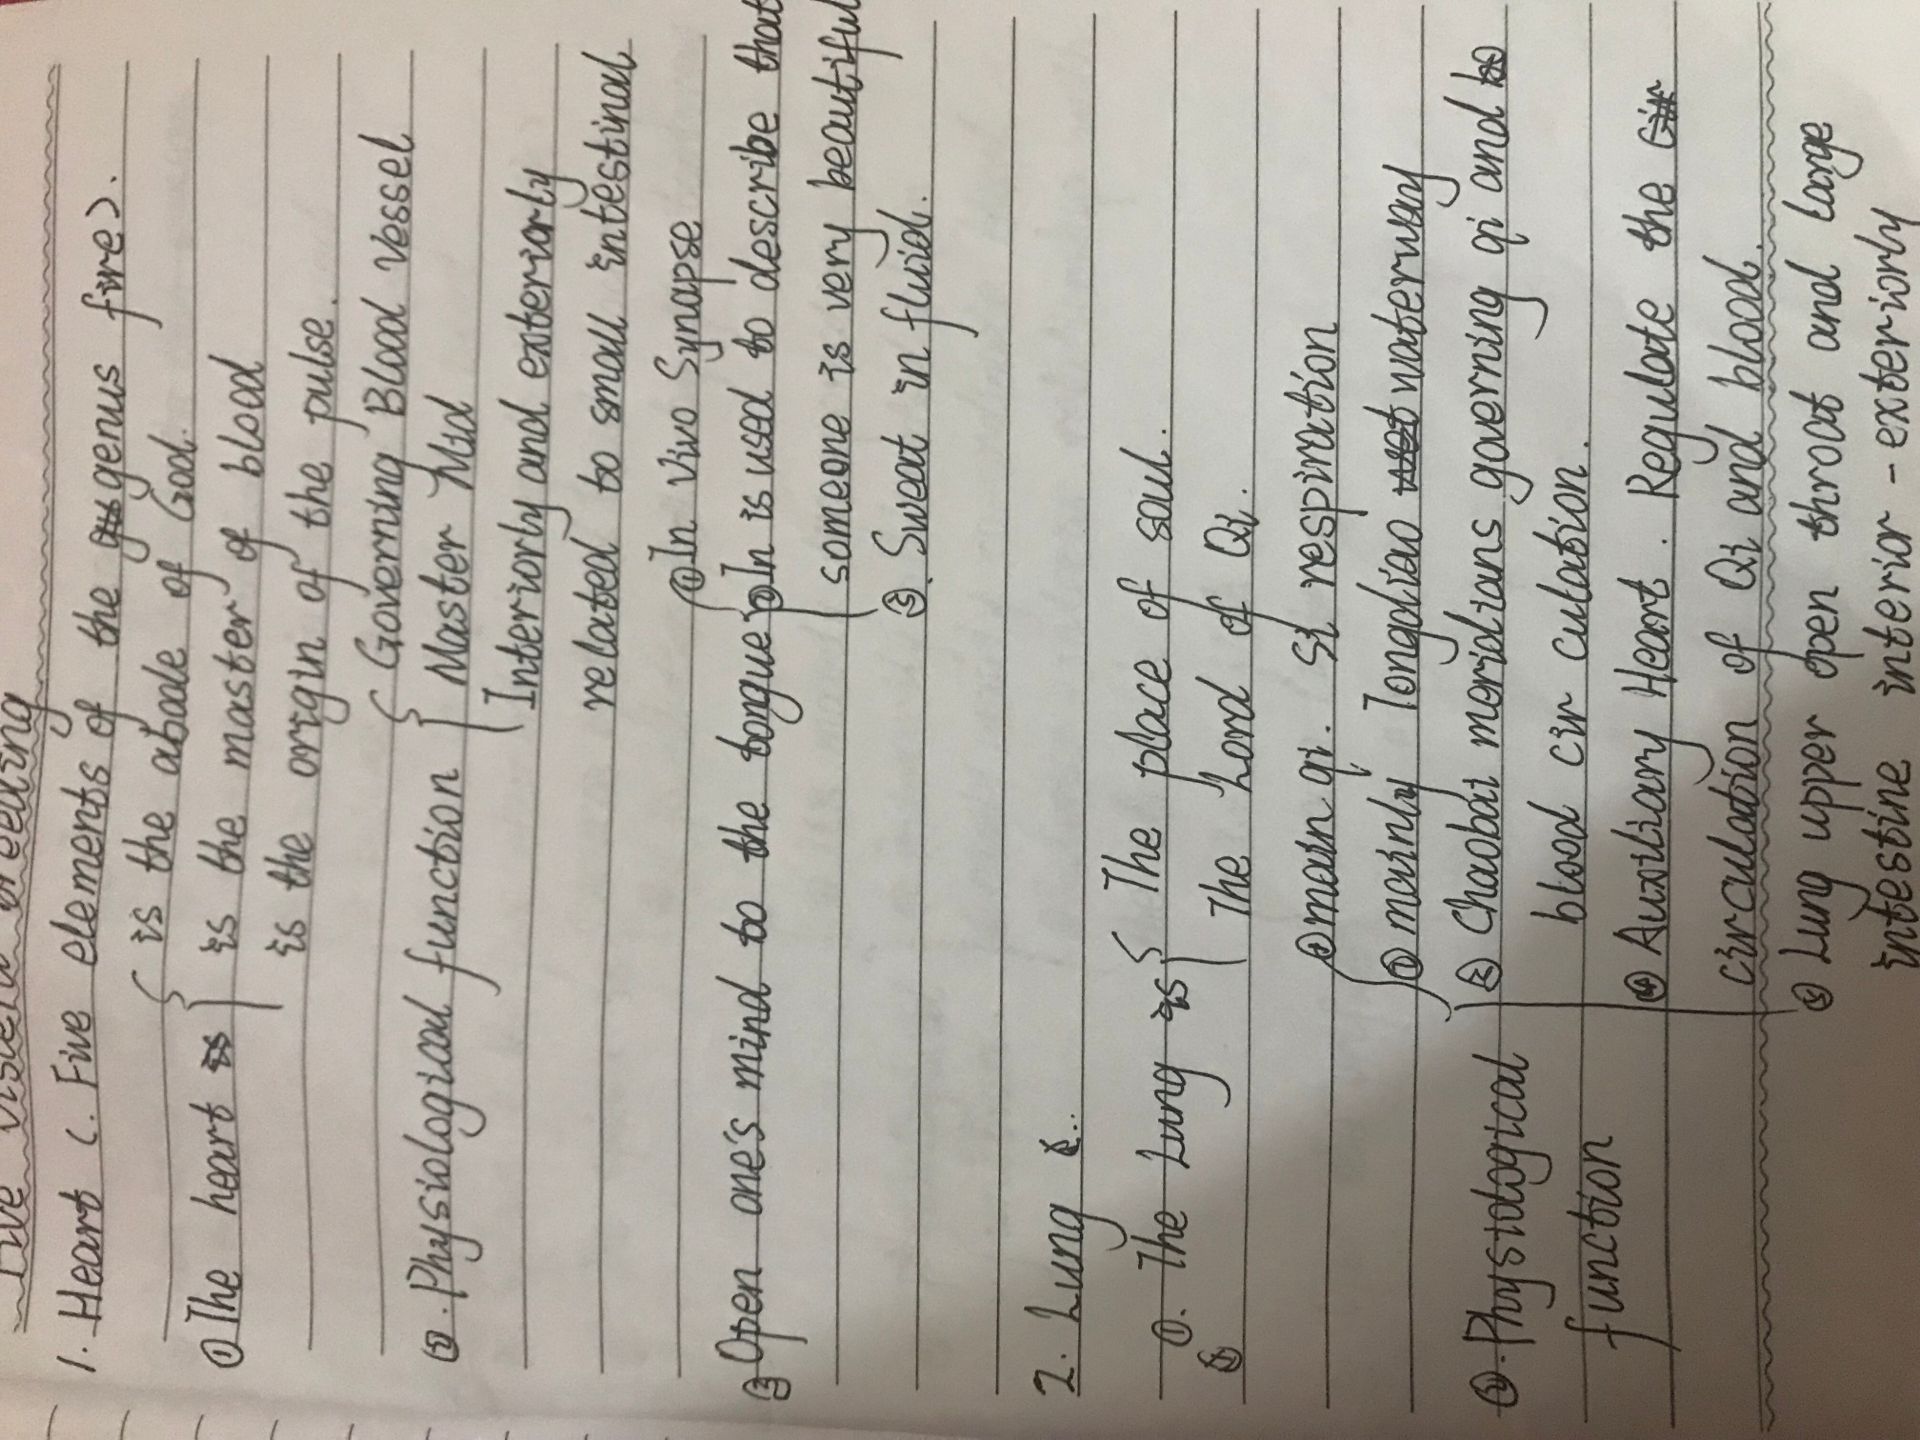 Five viscera
1. Heart (. Five elements of the genus fire).
is the abode of God.
① The heart is is the master of blood
is the origin of the pulse.
②. Physiological function Governing Blood vessel
Master Mtd
Interiorly and exteriorly
related to small intestinal
① In vivo Synapse
③ Open one's mind to the tongue ② In is used to describe that
someone is very beautiful
③. Sweat in fluid.
2. Lung
①. The Lung is The place of soul.
The Lord of Qi.
① main qi. Si respiration
② mainly Tongdiao waterway
②. Physiological ③ Chaobai meridians governing qi and
blood cir culation.
function ④ Auxiliary Heart. Regulate the
circulation of Qi and blood.
⑤ Lung upper open throat and large
intestine interior - exteriorly